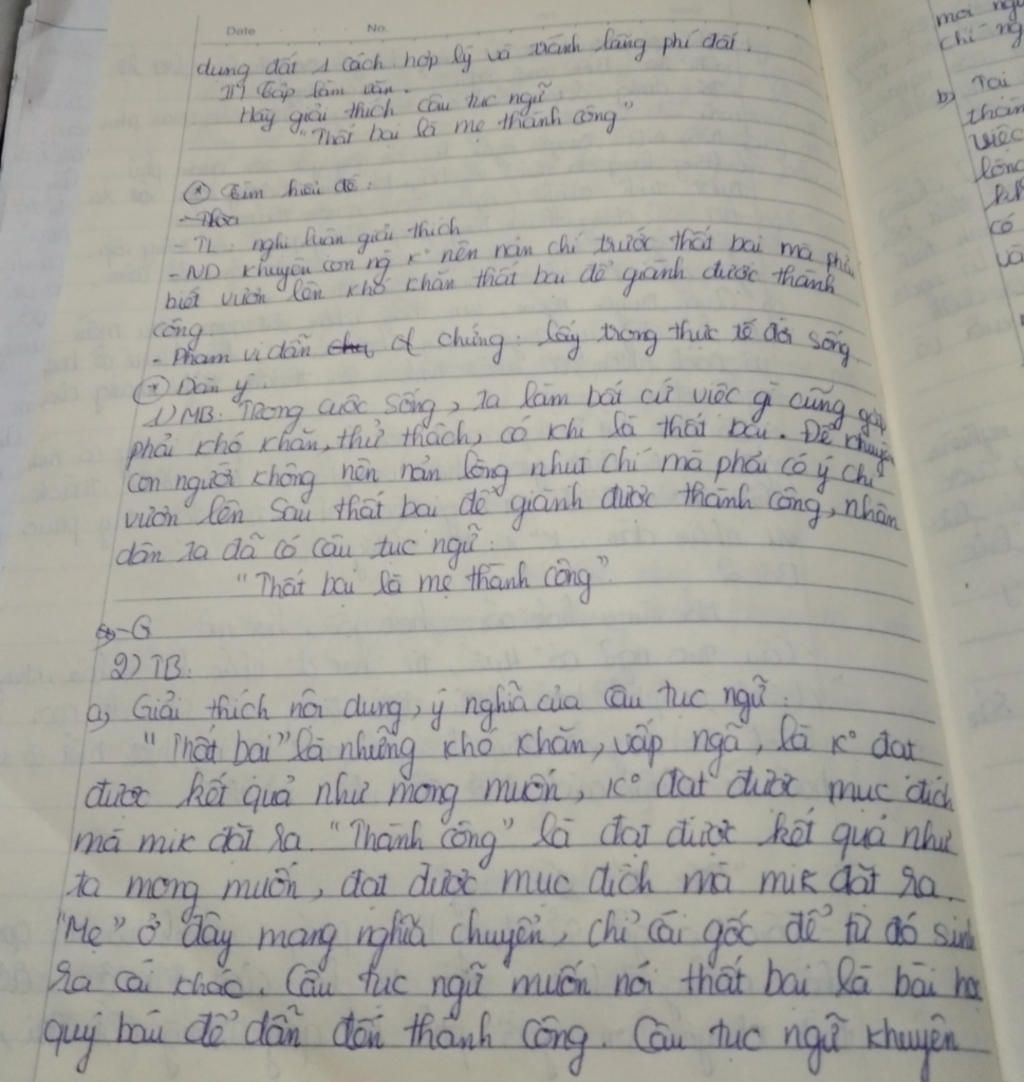 Date No.
dụng đất 1 cách hợp lý và tránh lãng phí đất.
III) Tập làm văn.
Hãy giải thích câu tục ngữ
"Thất bại là mẹ thành công"
* Tìm hiểu đề:
- TL: nghị luận giải thích
- ND khuyên con ng K° nên nản chí trước thất bại mà phải
biết vươn lên khó khăn thất bại để giành được thành
công
- Phạm vi dẫn chứng: lấy trong thực tế đời sống
* Dàn ý
1) MB: Trong cuộc sống, ta làm bất cứ việc gì cũng gặp
phải khó khăn, thử thách, có khi là thất bại. Để khuyên
con người không nên nản lòng nhụt chí mà phải có ý chí
vươn lên sau thất bại để giành được thành công, nhân
dân ta đã có câu tục ngữ:
"Thất bại là mẹ thành công".
- G
2) TB:
a, Giải thích nội dung, ý nghĩa của câu tục ngữ:
"Thất bại" là những khó khăn, vấp ngã, là K° đạt
được kết quả như mong muốn, K° đạt được mục đích
mà mik đặt ra. "Thành công" là đạt được kết quả như
ta mong muốn, đạt được mục đích mà mik đặt ra.
"Mẹ" ở đây mang nghĩa chuyển, chỉ cái gốc để từ đó sinh
ra cái khác. Câu tục ngữ muốn nói thất bại là bài học
quý báu để dẫn đến thành công. Câu tục ngữ khuyên
mọi
chí
b) Tai
việc
có
và